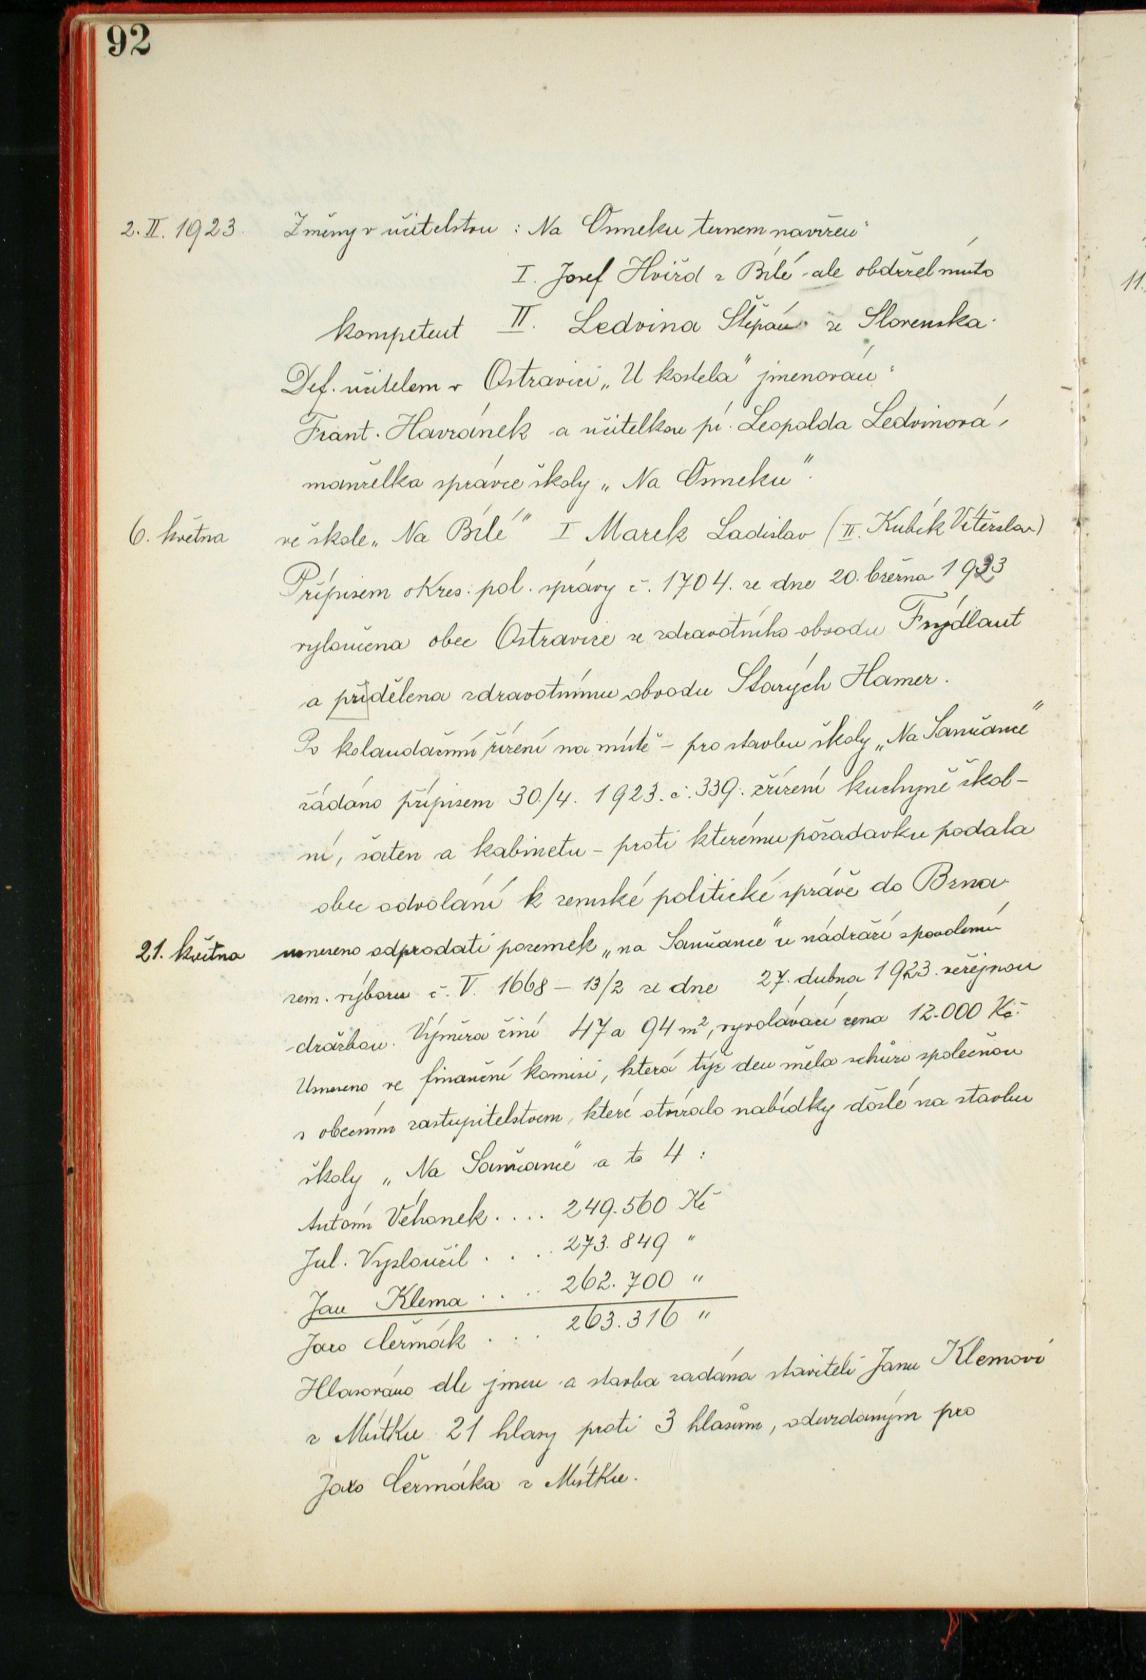 92
2. II. 1923. Změny v učitelstvu : Na Osmeku ternem navržen:
I. Josef Hvižd z Bílé - ale obdržel místo
kompetent II. Ledvina Štěpán ze Slovenska.
Def. učitelem v Ostravici „U kostela" jmenován:
Frant. Havránek a učitelkou pí. Leopolda Ledvinová,
manželka správce školy „Na Osmeku".
6. května ve škole „Na Bílé" I Marek Ladislav (II. Kubík Vítězslav)
Přípisem okres. pol. správy č. 1704. ze dne 20. března 1923
vyloučena obec Ostravice ze zdravotního obvodu Frýdlant
a přidělena zdravotnímu obvodu Starých Hamer.
Po kolaudačním řízení na místě - pro stavbu školy „Na Sančance"
žádáno přípisem 30./4. 1923. č. 339. zřízení kuchyně škol-
ní, šaten a kabinetu - proti kterému požadavku podala
obec odvolání k zemské politické správě do Brna.
21. května usneseno odprodati pozemek „na Sančance" u nádraží zpovolení
zem. výboru č. V. 1668 - 13/2 ze dne 27. dubna 1923. veřejnou
dražbou. Výměra činí 47 a 94 m², vyvolávací cena 12.000 Kč.
Usneseno ve finanční komisi, která týž den měla schůzi společnou
s obecním zastupitelstvem, které otvíralo nabídky došlé na stavbu
školy „Na Sančance" a to 4 :
Antonín Věhonek .... 249.560 Kč
Jul. Vysloužil .... 273.849 "
Jan Klema .... 262.700 "
Jaro Čermák ... 263.316 "
Hlasováno dle jmen a stavba zadána staviteli Janu Klemovi
z Místku 21 hlasy proti 3 hlasům, odevzdaným pro
Jaro Čermáka z Místku.
11.